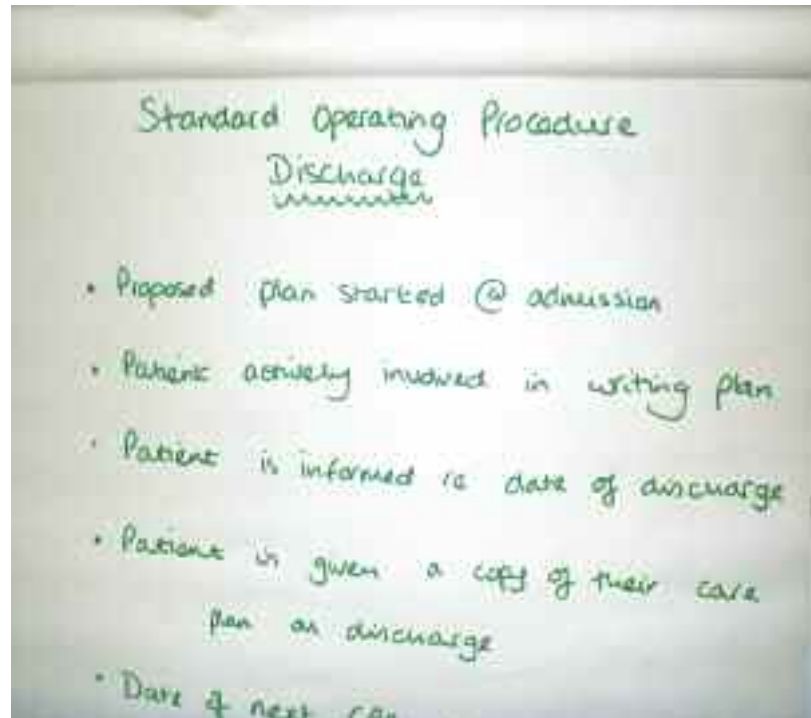 Standard Operating Procedure
Discharge
• Proposed plan started @ admission
• Patient actively involved in writing plan
• Patient is informed re date of discharge
• Patient is given a copy of their care
plan on discharge
• Date of next